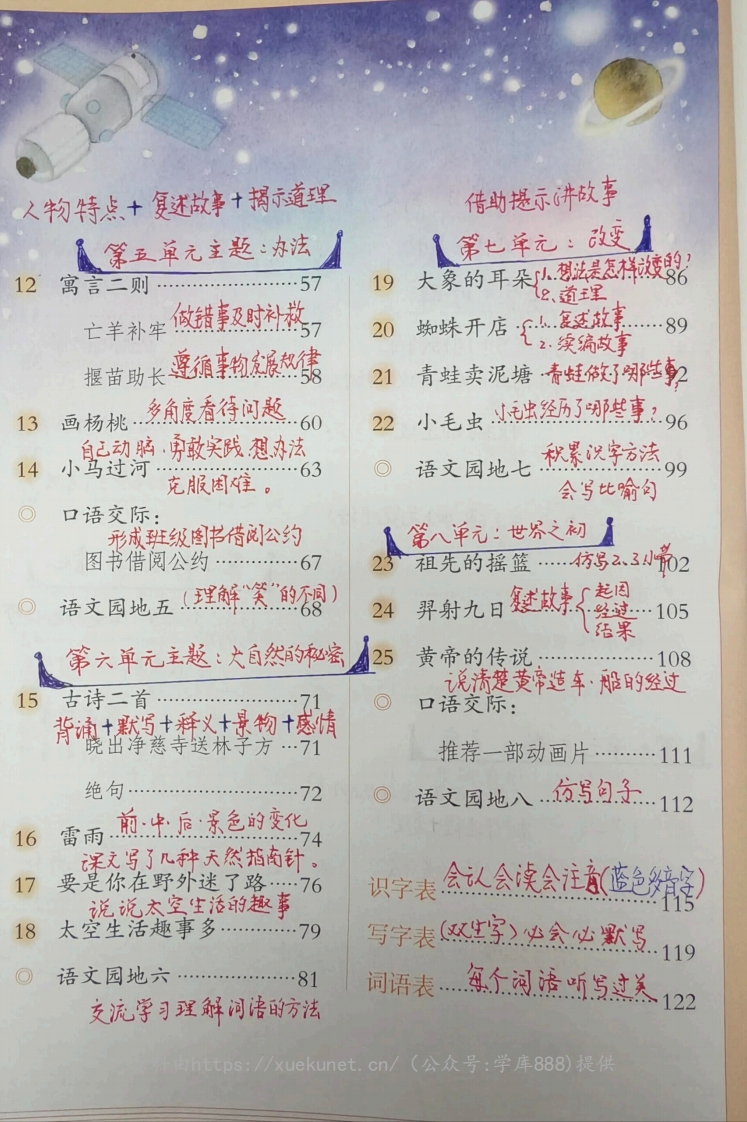 人物特点+复述故事+揭示道理
第五单元主题:办法
12 寓言二则……57
亡羊补牢 做错事及时补救 57
揠苗助长 遵循事物发展规律 58
多角度看待问题
13 画杨桃……60
自己动脑·勇敢实践 想办法
14 小马过河……63
克服困难。
◎ 口语交际:
形成班级图书借阅公约
图书借阅公约……67
◎ 语文园地五 (理解“笑”的不同) 68
第六单元主题:大自然的秘密
15 古诗二首……71
背诵+默写+释义+景物+感情
晓出净慈寺送林子方…71
绝句……72
前·中·后·景色的变化
16 雷雨……74
课文写了几种天然指南针。
17 要是你在野外迷了路……76
说说太空生活的趣事
18 太空生活趣事多……79
◎ 语文园地六……81
交流学习理解词语的方法
借助提示讲故事
第七单元:改变
19 大象的耳朵 {1.想法是怎样改变的? 86
2.道理
20 蜘蛛开店 {1.复述故事……89
2.续编故事
21 青蛙卖泥塘 青蛙做了哪些事? 92
22 小毛虫 小毛虫经历了哪些事? 96
◎ 语文园地七 积累识字方法 99
会写比喻句
第八单元:世界之初
23 祖先的摇篮……仿写2、3小节 102
24 羿射九日 复述故事 {起因
经过 105
结果
25 黄帝的传说……108
说清楚黄帝造车·船的经过
◎ 口语交际:
推荐一部动画片……111
◎ 语文园地八 仿写句子 112
识字表 会认会读会注音(蓝色多音字) 115
写字表 (双生字)必会必默写 119
词语表 每个词语听写过关 122
https://xuekunet.cn/ (公众号:学库888)提供